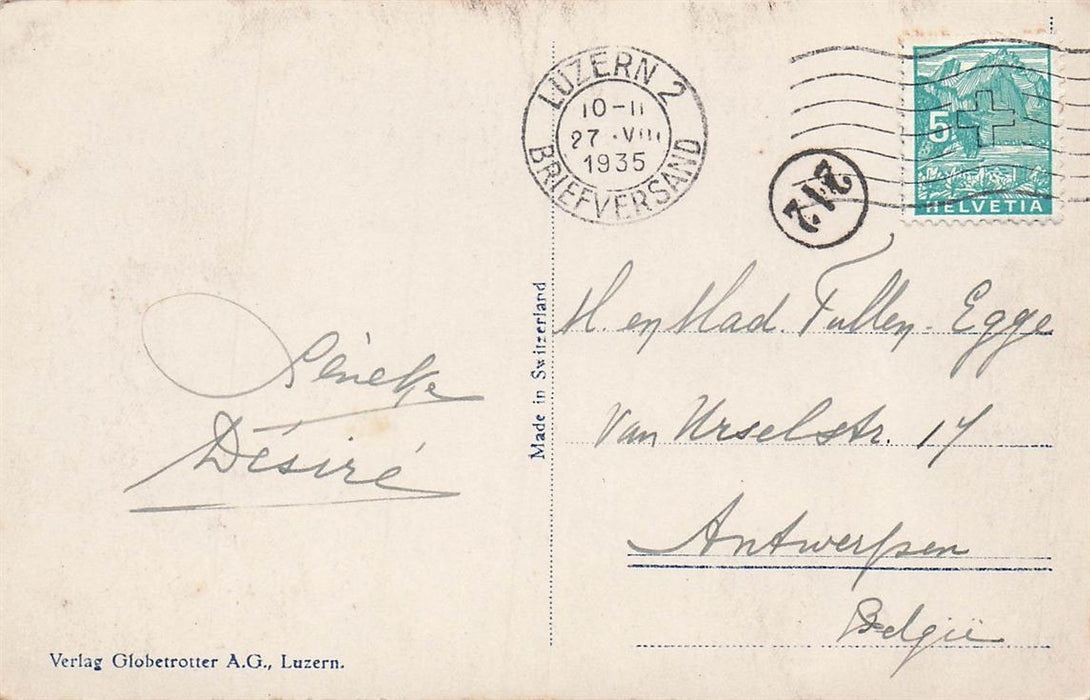 LUZERN 2
10-11
27.VIII
1935
BRIEFVERSAND
212
5
HELVETIA
Made in Switzerland
H. en Mad. Tullen-Egge
Van Urselstr. 17
Antwerpen
België
Désiré
Verlag Globetrotter A.G., Luzern.